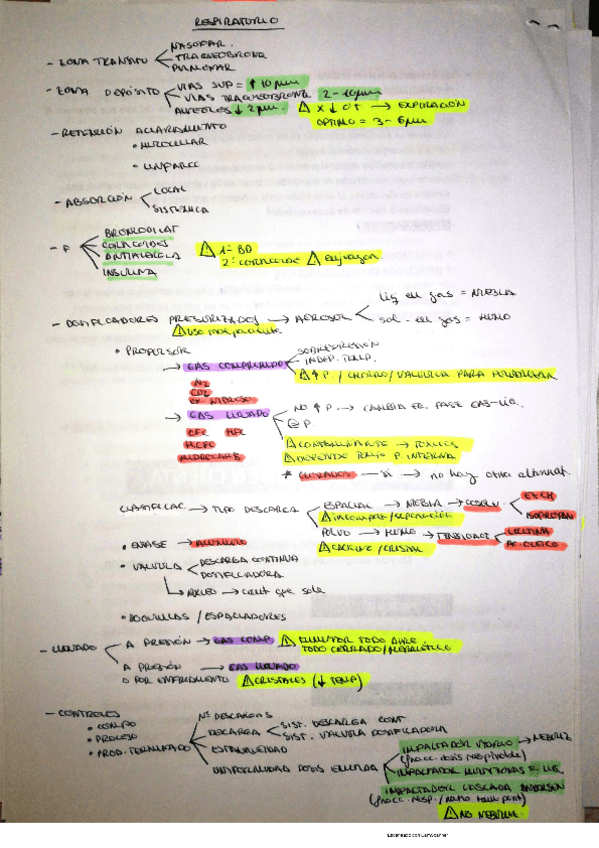 RESPIRATORIO
- ZONA TRÁNSITO
NASOFAR.
TRAQUEOBRONQ
PULMONAR
- ZONA DEPÓSITO
VÍAS SUP = ↑ 10 µm
VÍAS TRAQUEOBRONQ 2 - 10 µm
ALVEOLOS ↓ 2 µm.
⚠ X ↓ → EXPIRACIÓN
ÓPTIMO = 3 - 6 µm
- RETENSIÓN ACLARAMIENTO
• MUCOCILIAR
• LINFÁTICO
- ABSORCIÓN
LOCAL
SISTÉMICA
- F
BRONCODILAT
CORTICOIDES
ANTIALÉRGICA
INSULINA
⚠ 1º BD
2º CORTICOIDE ⚠ enjuagar.
- DOSIFICADORES PRESURIZADOS → AEROSOL
liq en gas = NIEBLA
sol - en gas = HUMO
• PROPULSOR
→ GAS COMPRIMIDO
SOBREPRESIÓN
INDEP. TEMP.
⚠ ↑ P. / CHORRO / VALVULA PARA
N2
CO2
OX NITROSO
→ GAS LICUADO
NO ↑ P. → CAMBIA EQ. FASE GAS-LIQ.
@ P.
CFC HFC
HCFC
HIDROCARB
⚠ CONTAMINANTE → TÓXICOS
⚠ DEPENDE P. INTERNA
* → si → no hay otra alternat.
CLASIFICAC → TIPO DESCARGA
ESPACIAL → NIEBLA → COSOLV
ETOH
ISOPROPAN
⚠ INCOMPAT/SEPARACIÓN
POLVO → HUMO → TENSIOACT
LECITINA
AC. OLEICO
⚠ CAKING / CRISTAL
• ENVASE → ALUMINIO
• VALVULA
DESCARGA CONTINUA
DOSIFICADORA
→ → cant que sale
• BOQUILLAS / ESPACIADORES
- LLENADO
A PRESIÓN → GAS COMP
⚠ ELIMINAR TODO AIRE
TODO CERRADO/HERMÉTICO
A PRESIÓN → GAS LICUADO
O POR ENFRIAMIENTO ⚠ CRISTALES (↓ TEMP)
- CONTROLES
• COMPO
• PROCESO
• PROD. TERMINADO
Nº DESCARGAS
DESCARGA
SIST. DESCARGA CONT.
SIST. VALVULA DOSIFICADORA
ESTANQUEIDAD
UNIFORMIDAD DOSIS EMITIDA
IMPACTADOR VIDRIO → NEBULIZ
(fracc. dosis respirable)
IMPACTADOR MULTIETAPAS
IMPACTADOR CASCADA ANDERSEN
⚠ NO NEBULIZ.
Escaneado con CamScanner